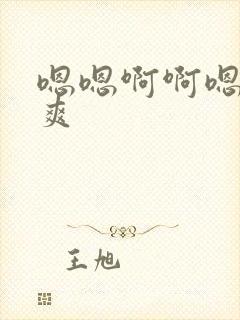 嗯嗯啊啊嗯
爽
王旭